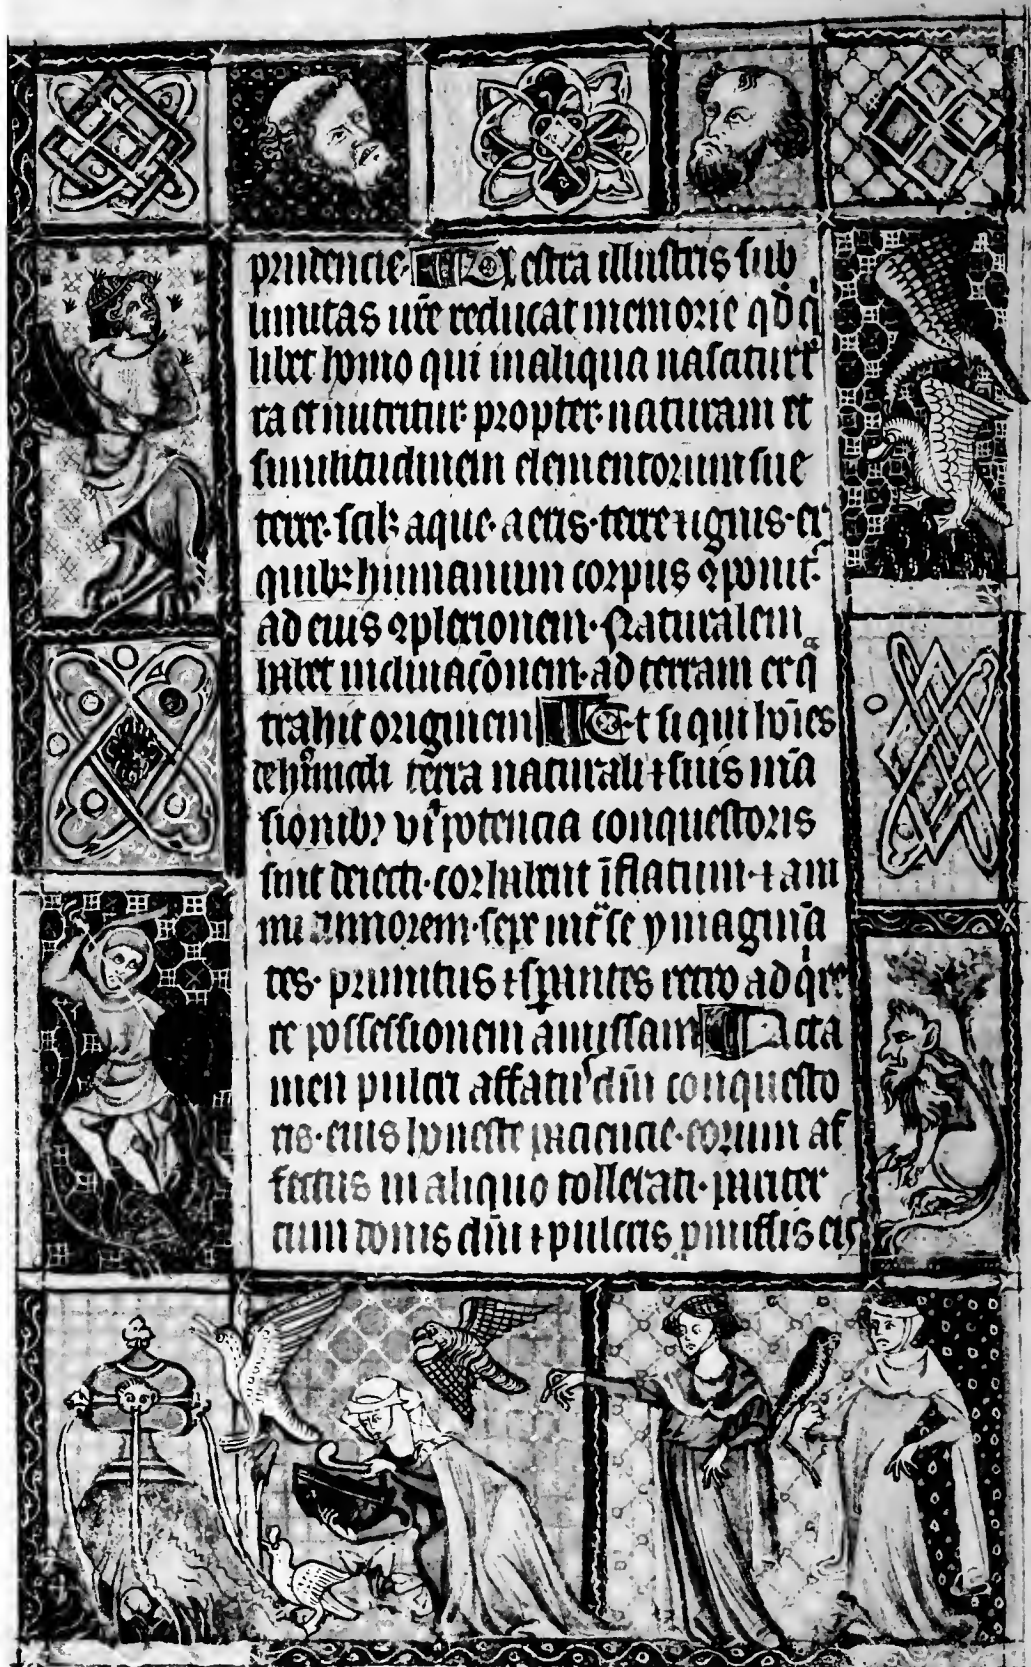 prudencie. Uestra illustris sub
limitas ur̄e reducat memorie qđ q
libet homo qui in aliqua nascitur t̉
ra et nutritur. propter naturam et
similitudinem elementorum sue
terre. scilꝫ aque. aeris. terre ⁊ ignis. ex
quibꝫ humanum corpus ꝯponit᷑.
ad eius ꝯplexionem. Naturalem
habet inclinacōnem. ad terram ex qᵃ
trahit originem Et si qui hōīes
terra naturali ⁊ suis mā
sionibꝫ potencia conquestoris
sint deiecti. cor habent īflatum. ⁊ ani
mi sepe int̉ se ymaginā
tes. primitus ⁊ sꝑantes retro adq̇re
re possessionem āmissam
men pulcri affatus dn̄i conquesto
ris. eius honeste paciencie. eorum af
fectus in aliquo tollerati. pariter
cum donis dn̄i ⁊ pulcris ꝓmissis eis